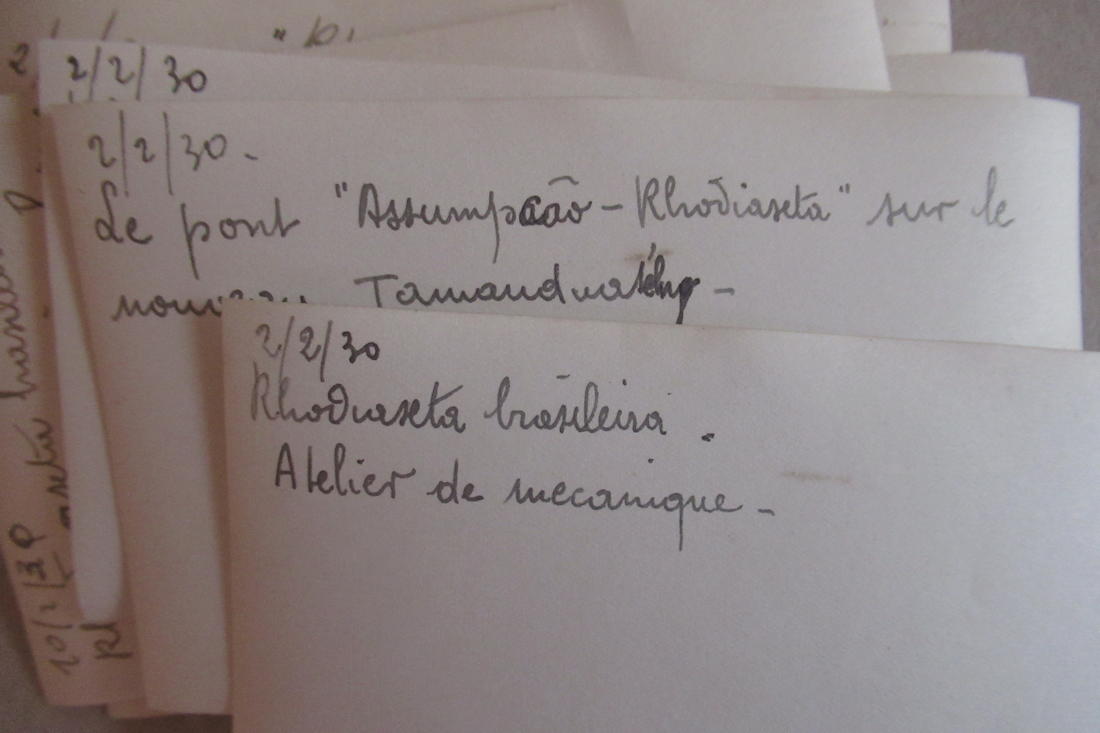 2/2/30
2/2/30-
Le pont "Assumpcão-Rhodiaseta" sur le
nouveau Tamanduatéhy-
2/2/30
Rhodiaseta brasileira.
Atelier de mecanique-
10/2/30